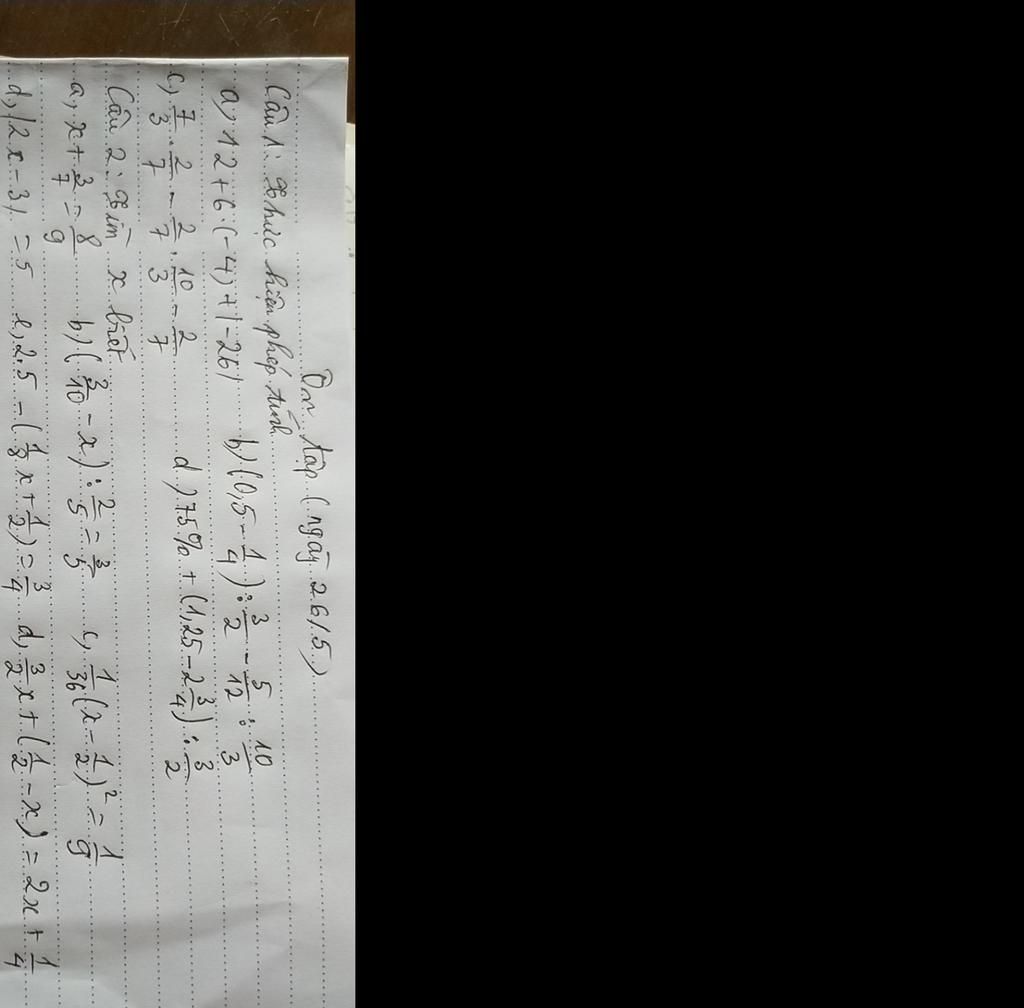 Ôn tập (ngày 26/5)
Câu 1: Thực hiện phép tính
a, 12 + 6.(-4) + |-26| b) (0,5 - 1/4) : 3/2 - 5/12 : 10/3
c, 7/3 . 2/7 - 2/7 . 10/3 - 2/7 d) 75% + (1,25 - 2 3/4) : 3/2
Câu 2: Tìm x biết
a, x + 3/7 = 8/9 b) (3/10 - x) : 2/5 = 3/5 c, 1/36 (x - 1/2)² = 1/9
d, |2x - 3| = 5 e, 2.5 - (1/8 x + 1/2) = 3/4 d, 3/2 x + (1/2 - x) = 2x + 1/4